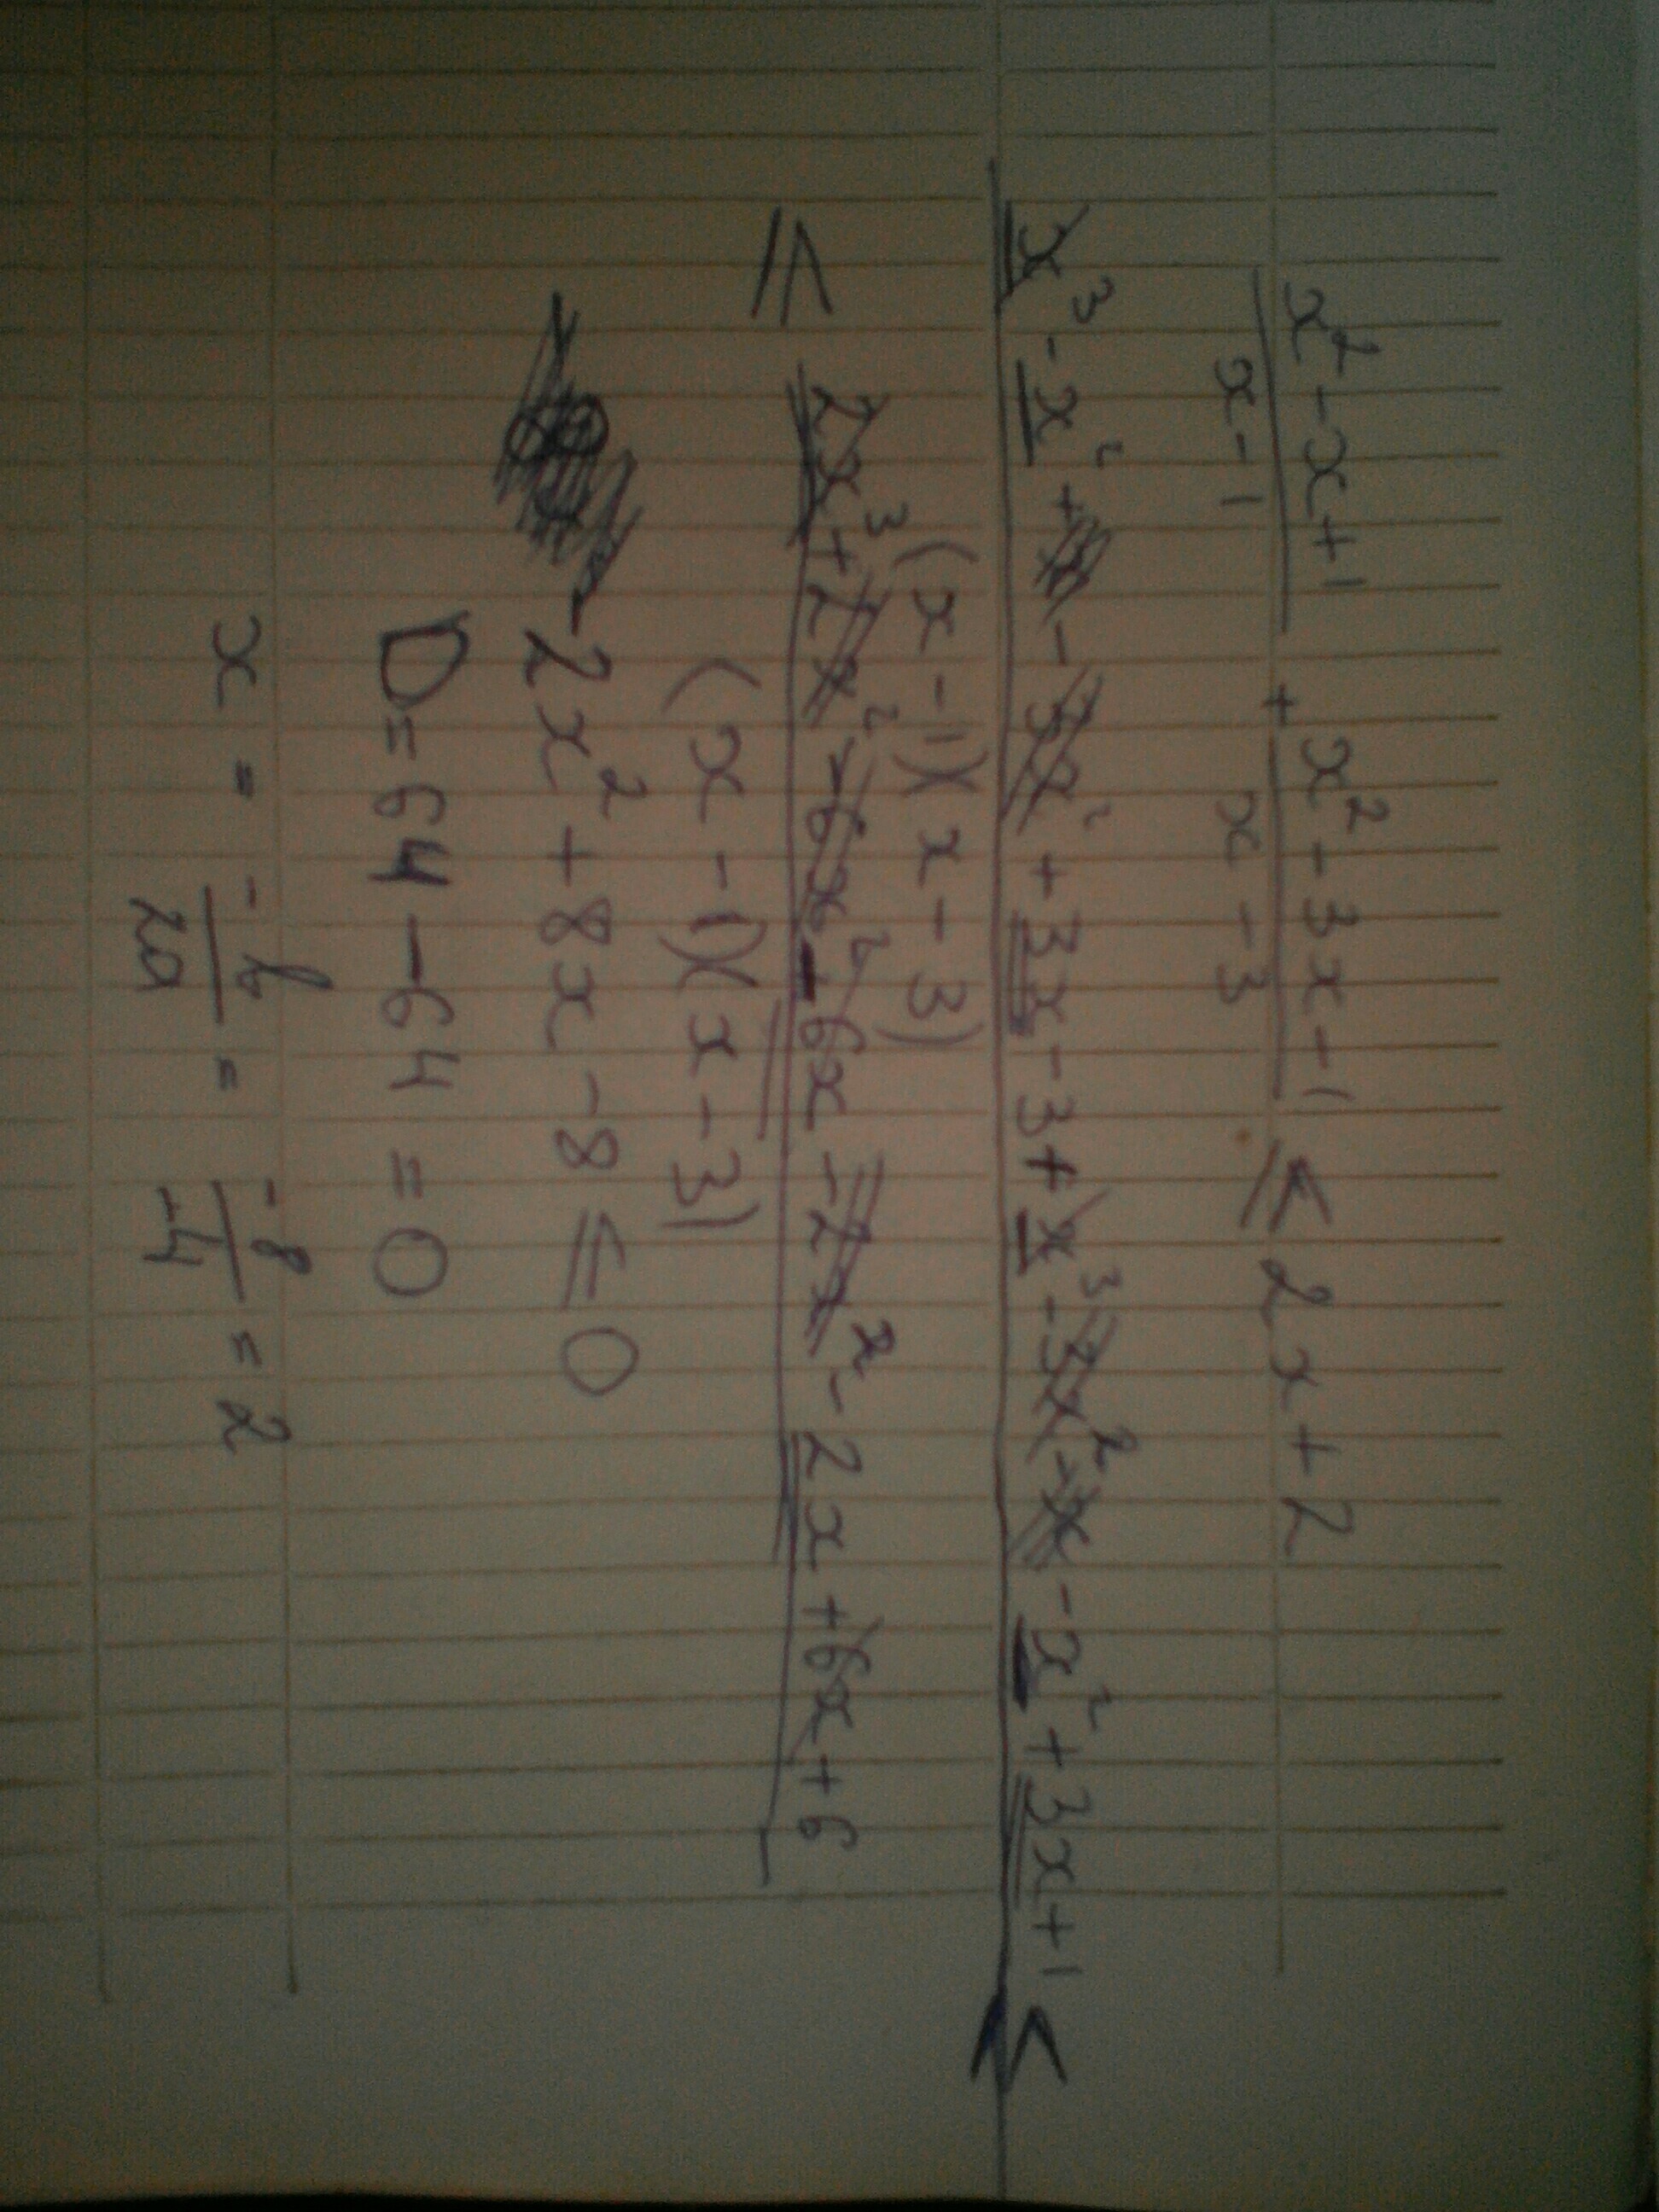 x² - x + 1 / x - 1 + x² - 3x - 1 / x - 3 ≤ 2x + 2
x³ - x² + x - 3x² + 3x - 3 + x³ - 3x² - x - x² + 3x + 1 ≤
(x - 1)(x - 3)
≤ 2x³ + 2x² - 6x² - 6x - 2x² - 2x + 6x + 6
(x - 1)(x - 3)
- 2x² + 8x - 8 ≤ 0
D = 64 - 64 = 0
x = -b / 2a = -8 / -4 = 2